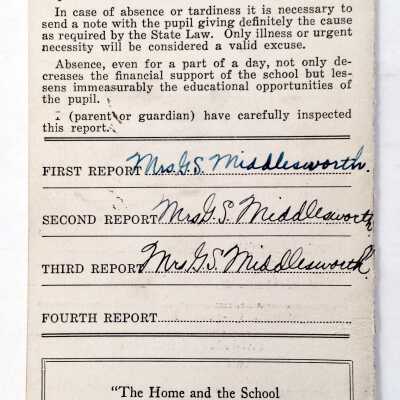 In case of absence or tardiness it is necessary to
send a note with the pupil giving definitely the cause
as required by the State Law. Only illness or urgent
necessity will be considered a valid excuse.
Absence, even for a part of a day, not only de-
creases the financial support of the school but les-
sens immeasurably the educational opportunities of
the pupil.
I (parent or guardian) have carefully inspected
this report.
FIRST REPORT Mrs. G. S. Middlesworth.
SECOND REPORT Mrs G. S. Middlesworth
THIRD REPORT Mrs G. S. Middlesworth
FOURTH REPORT
"The Home and the School